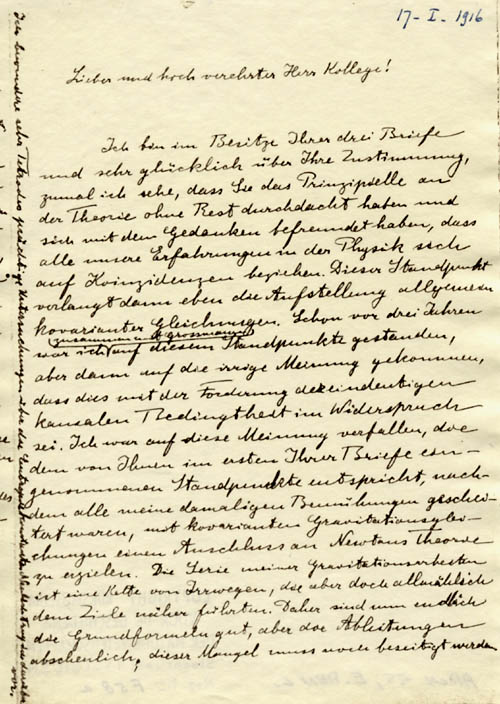 17-I. 1916
Lieber und hoch verehrter Herr Kollege!
Ich bin im Besitze Ihrer drei Briefe
und sehr glücklich über Ihre Zustimmung,
zumal ich sehe, dass Sie das Prinzipielle an
der Theorie ohne Rest durchdacht haben und
sich mit dem Gedanken befreundet haben, dass
alle unsere Erfahrungen in der Physik sich
auf Koinzidenzen beziehen. Dieser Standpunkt
verlangt dann eben die Aufstellung allgemein
kovarianter Gleichungen. Schon vor drei Jahren
(zusammen mit Grossmann)
war ich auf diesem Standpunkte gestanden,
aber dann auf die irrige Meinung gekommen,
dass dies mit der Forderung der eindeutigen
kausalen Bedingtheit im Widerspruch
sei. Ich war auf diese Meinung verfallen, die
dem von Ihnen im ersten Ihrer Briefe ein-
genommenen Standpunkte entspricht, nach-
dem alle meine damaligen Bemühungen geschei-
tert waren, mit kovarianten Gravitationsglei-
chungen einen Anschluss an Newtons Theorie
zu erzielen. Die Serie meiner Gravitationsarbeiten
ist eine Kette von Irrwegen, die aber doch allmählich
dem Ziele näher führten. Daher sind nun endlich
die Grundformeln gut, aber die Ableitungen
abscheulich; dieser Mangel muss noch beseitigt werden.
Ich
sehr
Untersuchungen über das
vor.